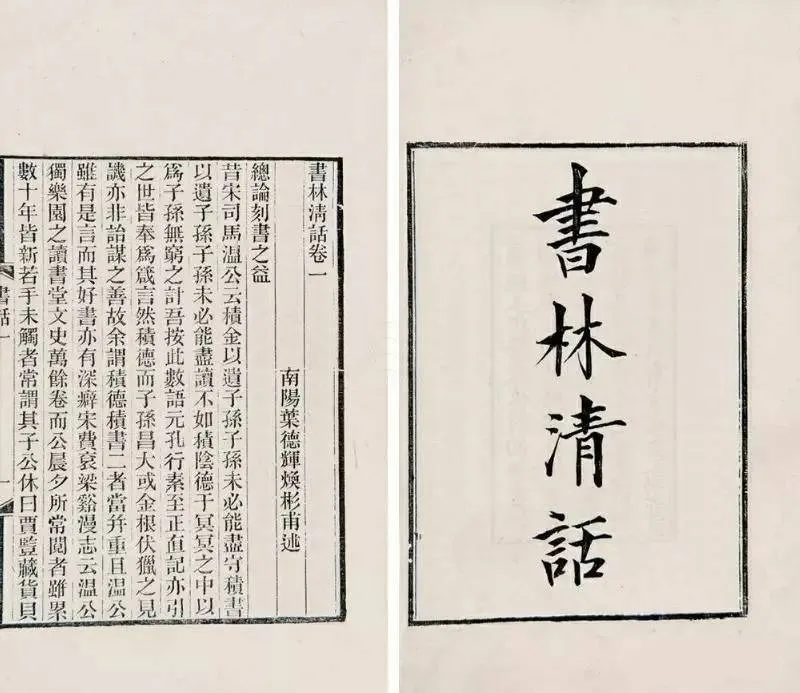 書林清話
書林淸話卷一
南陽葉德輝煥彬甫述
總論刻書之益
昔宋司馬溫公云積金以遺子孫子孫未必能盡守積書
以遺子孫子孫未必能盡讀不如積陰德于冥冥之中以
爲子孫無窮之計吾按此數語元孔行素至正直記亦引
之世皆奉爲箴言然積德而子孫昌大或金根伏獵之見
譏亦非詒謀之善故余謂積德積書二者當并重且溫公
雖有是言而其好書亦有深癖宋費袞梁谿漫志云溫公
獨樂園之讀書堂文史萬餘卷而公晨夕所常閱者雖累
數十年皆新若手未觸者常謂其子公休曰賈豎藏貨貝
書話一
一